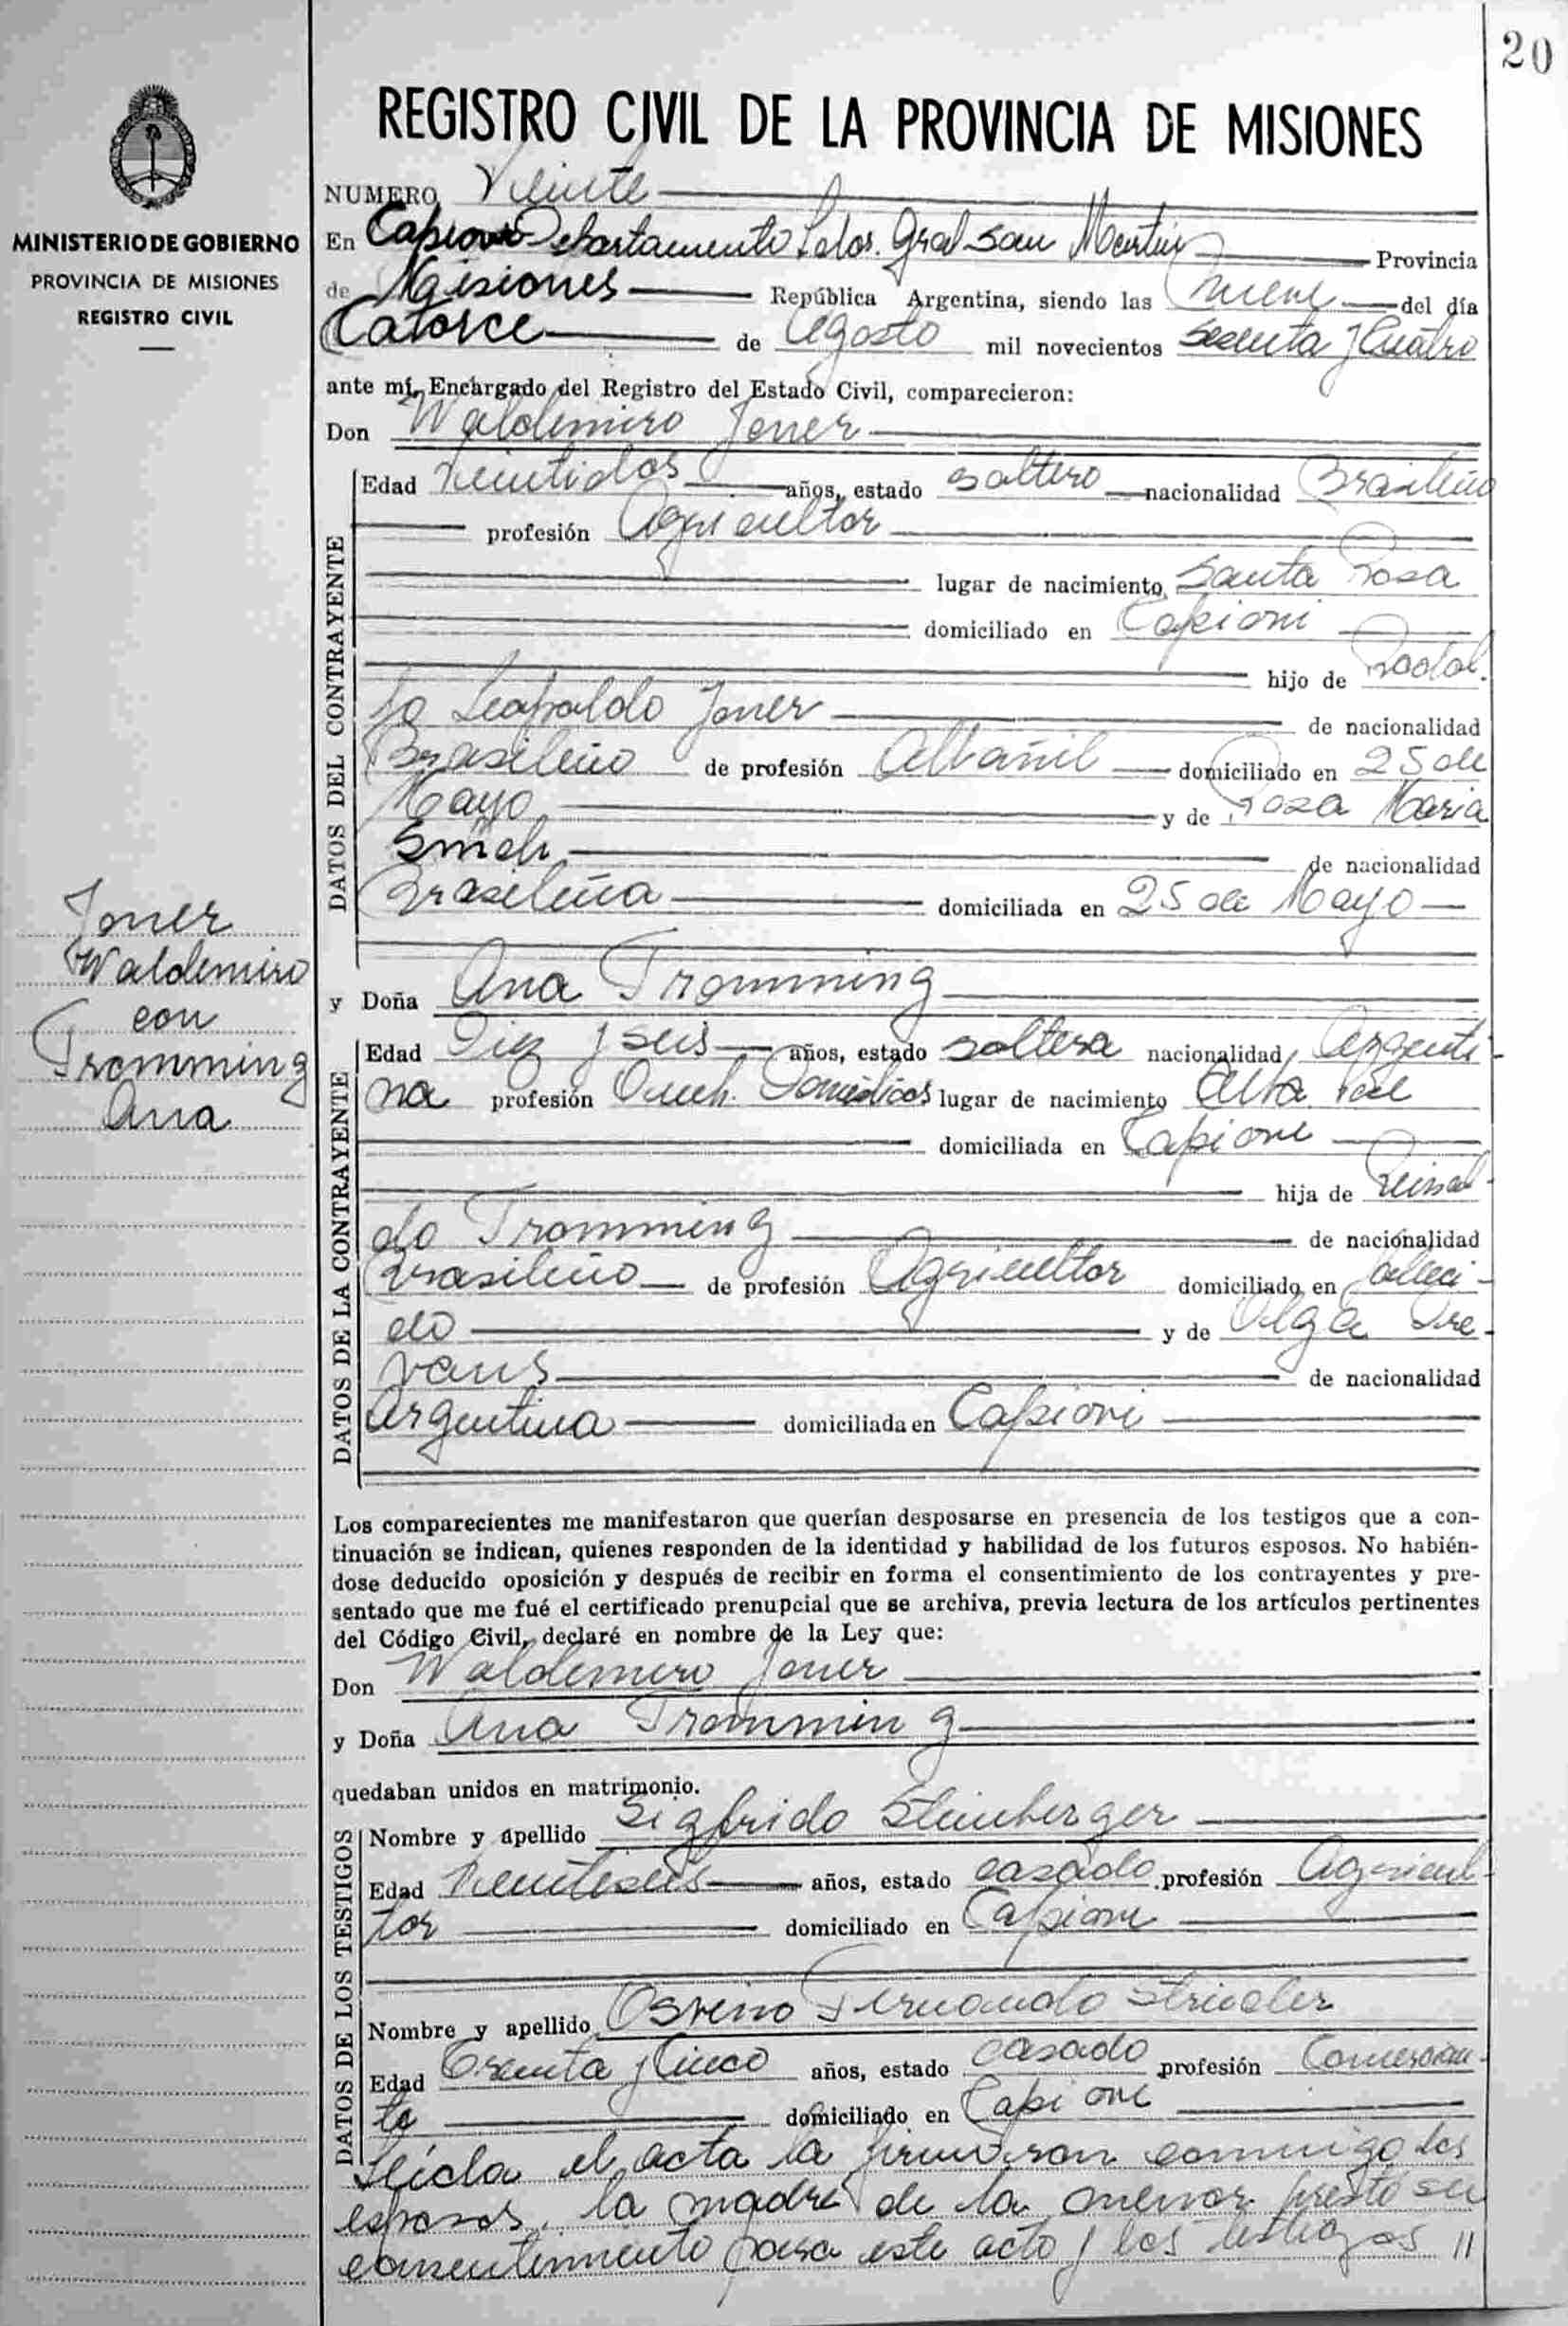 20
MINISTERIO DE GOBIERNO
PROVINCIA DE MISIONES
REGISTRO CIVIL
Joner
Waldemiro
con
Tromming
Ana
REGISTRO CIVIL DE LA PROVINCIA DE MISIONES
NUMERO Veinte
En Capioví Departamento Ldor. Gral San Martín Provincia
de Misiones República Argentina, siendo las nueve del día
Catorce de Agosto mil novecientos sesenta y Cuatro
ante mí, Encargado del Registro del Estado Civil, comparecieron:
Don Waldemiro Joner
DATOS DEL CONTRAYENTE
Edad veintidos años, estado soltero nacionalidad Brasileño
profesión Agricultor
lugar de nacimiento Santa Rosa
domiciliado en Capioví
hijo de Rodol-
fo Leopoldo Joner de nacionalidad
Brasileño de profesión Albañil domiciliado en 25 de
Mayo y de Rosa Maria
de nacionalidad
Brasileña domiciliada en 25 de Mayo
y Doña Ana Tromming
DATOS DE LA CONTRAYENTE
Edad Diez y seis años, estado soltera nacionalidad Argenti-
na profesión Queh. Domésticos lugar de nacimiento
domiciliada en Capioví
hija de Reinal-
do Tromming de nacionalidad
Brasileño de profesión Agricultor domiciliado en falleci-
do y de Olga
de nacionalidad
Argentina domiciliada en Capioví
Los comparecientes me manifestaron que querían desposarse en presencia de los testigos que a con-
tinuación se indican, quienes responden de la identidad y habilidad de los futuros esposos. No habién-
dose deducido oposición y después de recibir en forma el consentimiento de los contrayentes y pre-
sentado que me fué el certificado prenupcial que se archiva, previa lectura de los artículos pertinentes
del Código Civil, declaré en nombre de la Ley que:
Don Waldemiro Joner
y Doña Ana Tromming
quedaban unidos en matrimonio.
DATOS DE LOS TESTIGOS
Nombre y apellido Sigfrido Steinberger
Edad Veintiseis años, estado casado profesión Agricul-
tor domiciliado en Capioví
Nombre y apellido Fernando Strieder
Edad Treinta y Cinco años, estado casado profesión Comercian-
te domiciliado en Capioví
Leída el acta la firmaron conmigo los
esposos, la madre de la menor prestó su
consentimiento para este acto y los testigos //